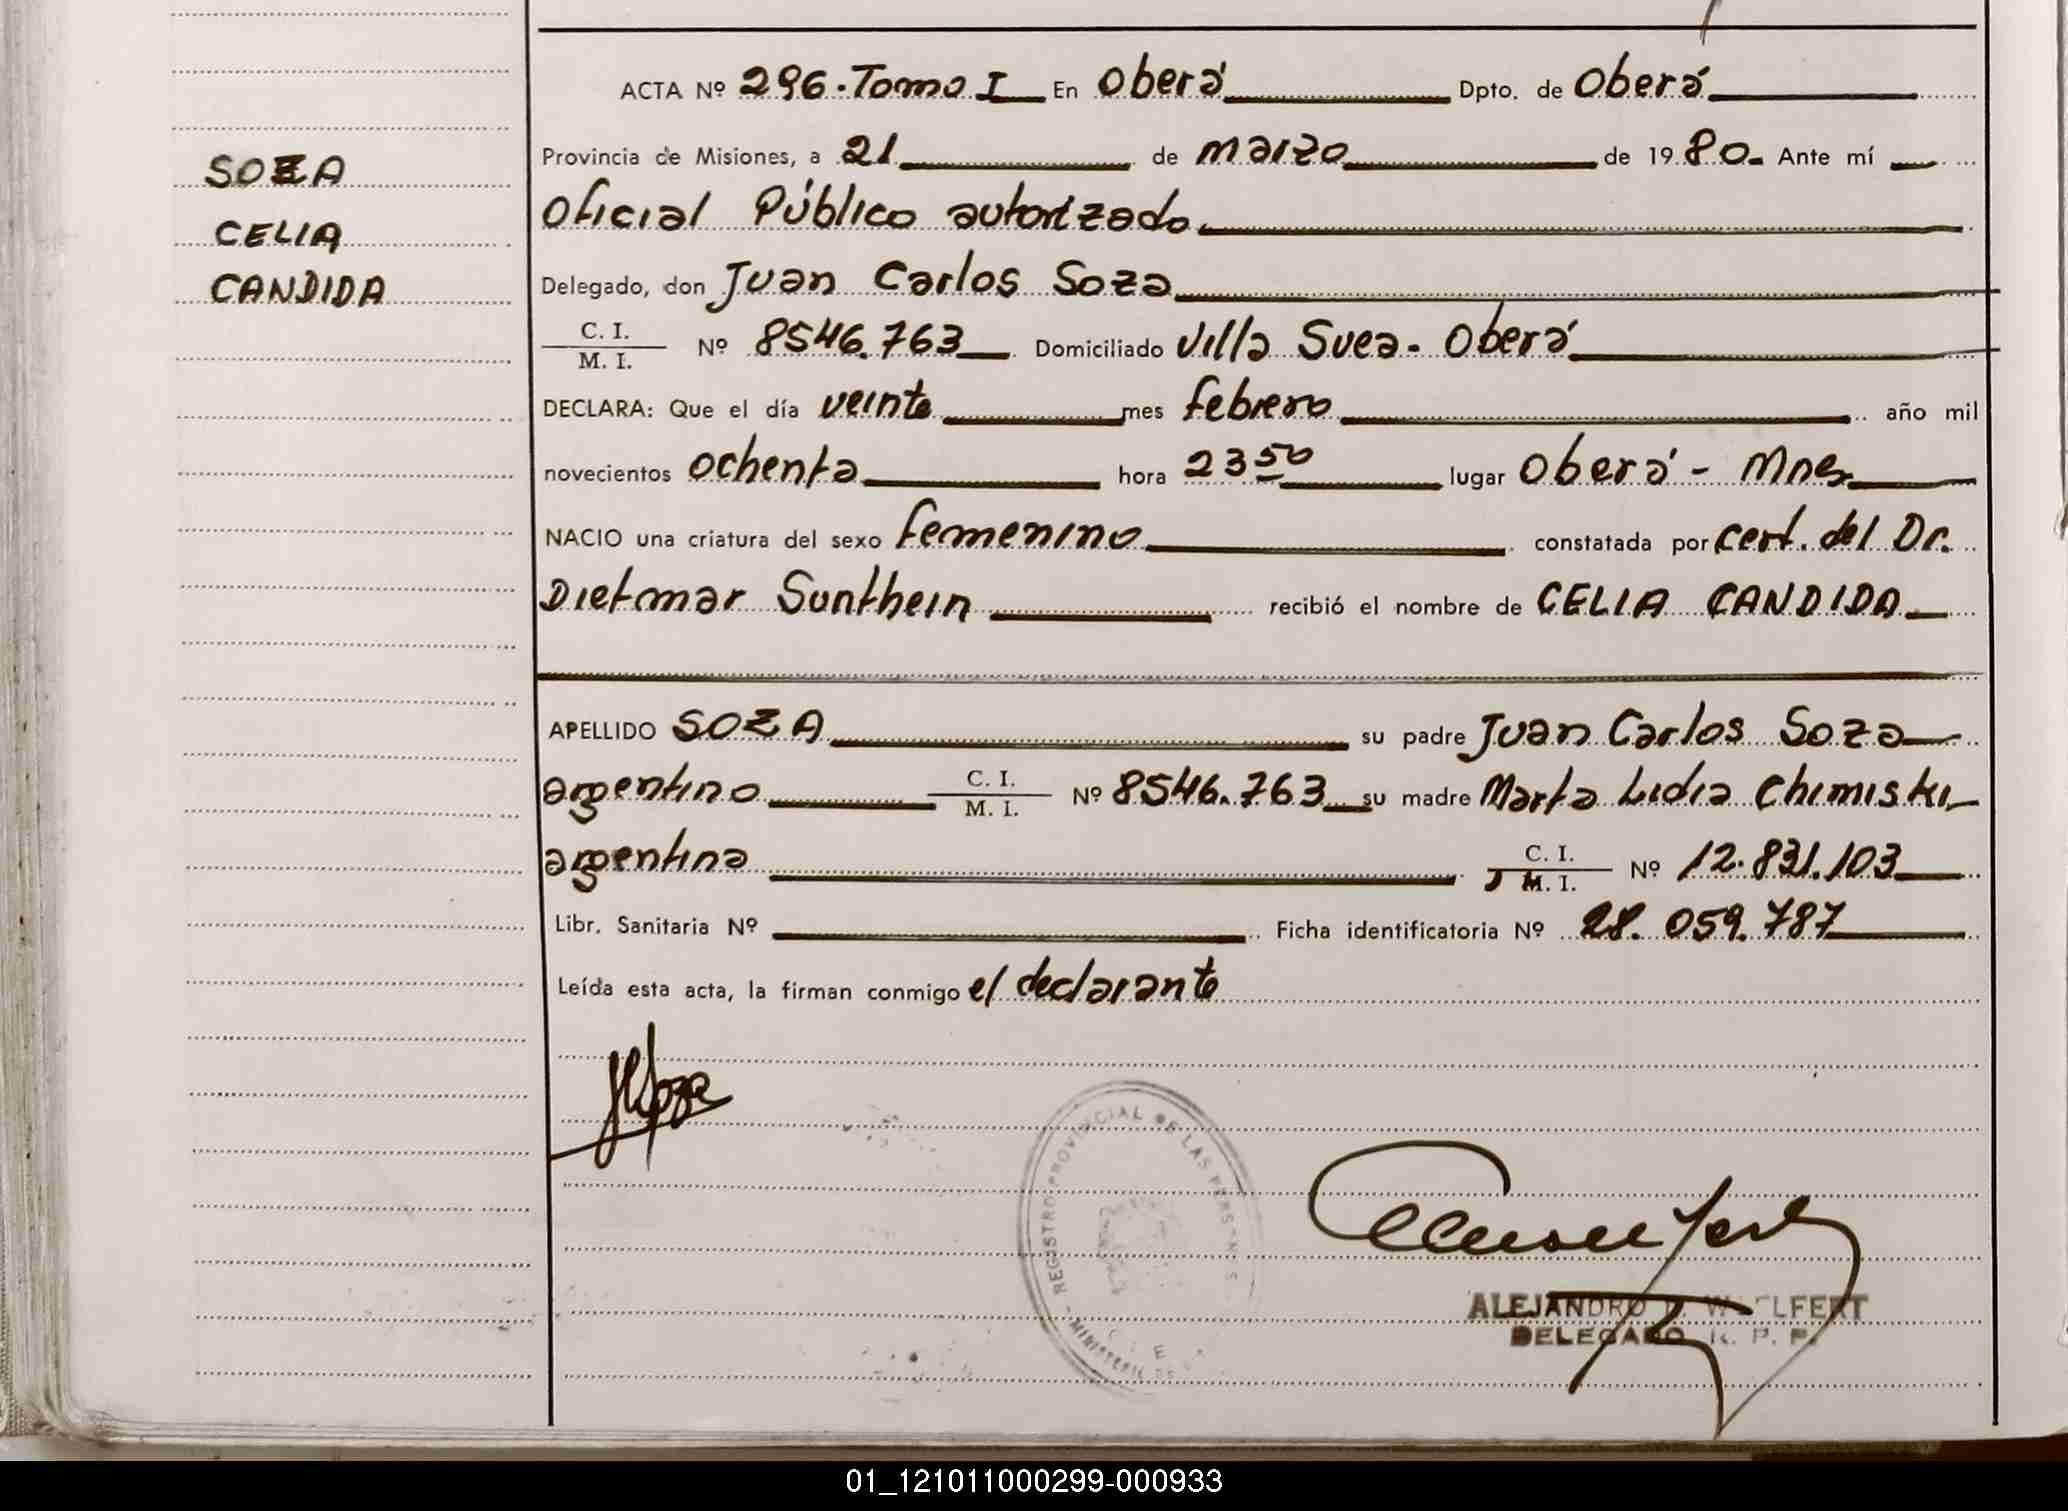 ACTA Nº 296. Tomo I En Oberá Dpto. de Oberá
Provincia de Misiones, a 21 de marzo de 1980. Ante mí
Oficial Público autorizado
Delegado, don Juan Carlos Soza
C. I.
M. I. Nº 8546.763 Domiciliado Villa Svea - Oberá
DECLARA: Que el día veinte mes febrero año mil
novecientos ochenta hora 23 50 lugar Oberá - Mnes
NACIO una criatura del sexo femenino constatada por cert. del Dr.
Dietmar Sunthein recibió el nombre de CELIA CANDIDA
APELLIDO SOZA su padre Juan Carlos Soza
argentino C. I. M. I. Nº 8546.763 su madre Marta Lidia Chimiski
argentina C. I. M. I. Nº 12.831.103
Libr. Sanitaria Nº Ficha identificatoria Nº 28.059.787
Leída esta acta, la firman conmigo el declarante
SOZA
CELIA
CANDIDA
REGISTRO PROVINCIAL DE LAS PERSONAS
ALEJANDRO WOLFERT
DELEGADO R. P. P.
01_121011000299-000933